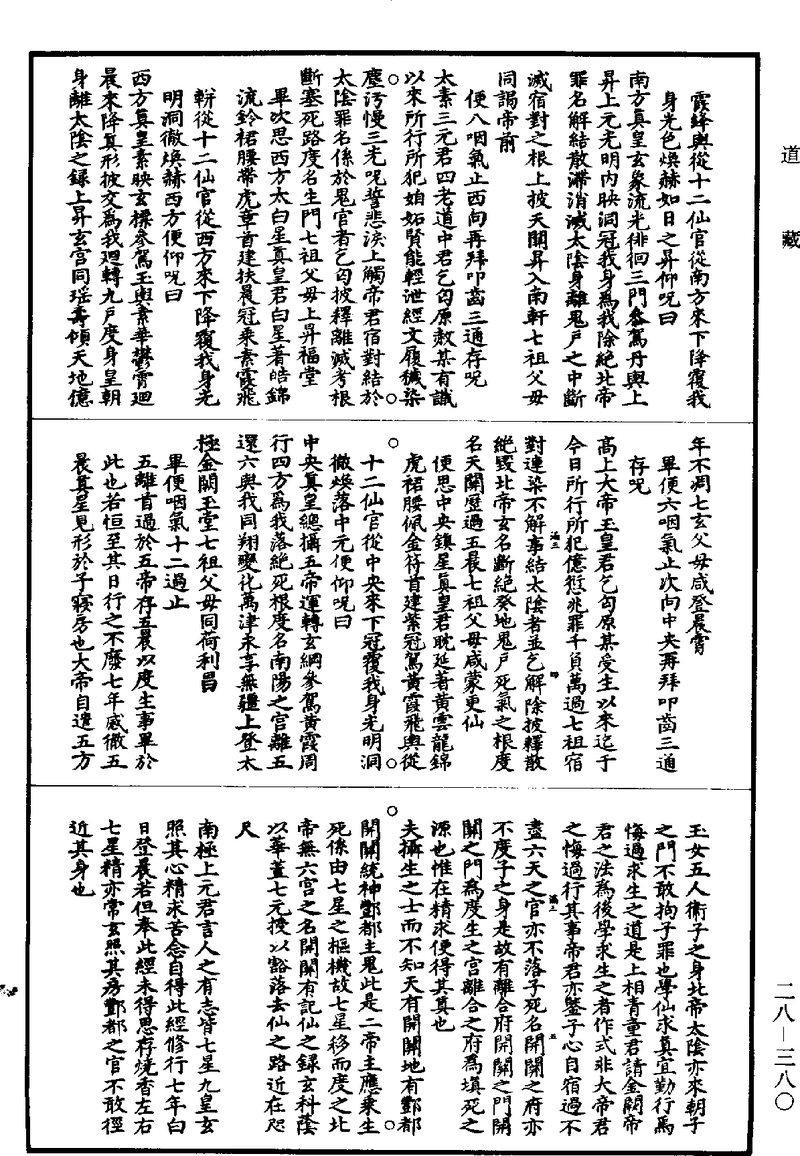 道藏
霞絳輿從十二仙官從南方來下降覆我
身光色煥赫如日之昇仰呪曰
南方真皇玄象流光徘徊三門參駕丹輿上
昇上元光明內映洞冠我身為我除絕北帝
罪名解結散滯消滅太陰身離鬼戶之中斷
滅宿對之根上披天關昇入南軒七祖父母
同謁帝前
便八咽氣止西向再拜叩齒三通存呪
太素三元君四老道中君乞匃原赦某有識
以來所行所犯媢妬賢能輕泄經文履穢染
塵汚慢三光呪誓悲淚上觸帝君宿對結於
太陰罪名係於鬼官者乞匃披釋離滅考根
斷塞死路度名生門七祖父母上昇福堂
畢次思西方太白星真皇君白星著皓錦
流鈴裙腰帶虎章首建扶晨冠乘素霞飛
軿從十二仙官從西方來下降覆我身光
明洞徹煥赫西方便仰呪曰
西方真皇素映玄標參駕玉輿素華鬱霄迴
晨來降真形披交為我迴轉九戶度身皇朝
身離太陰之錄上昇玄宮同瑶壽傾天地億
年不凋七玄父母咸登晨霄
畢便六咽氣止次向中央再拜叩齒三通
存呪
高上大帝玉皇君乞匃原某受生以來迄于
今日所行所犯億愆兆罪千負萬過七祖宿
對連染不解事結太陰者並乞解除披釋散
絕毀北帝玄名斷絕癸地鬼戶死氣之根度
名天關歷過五晨七祖父母咸蒙更仙
便思中央鎮星真皇君耽延著黃雲龍錦
虎裙腰佩金符首建紫冠駕黃霞飛輿從
十二仙官從中央來下冠覆我身光明洞
徹煥落中元便仰呪曰
中央真皇總攝五帝運轉玄綱參駕黃霞周
行四方為我落絕死根度名南陽之宮離五
還六與我同翔變化萬津永享無疆上登太
極金闕玉堂七祖父母同荷利昌
畢便咽氣十二過止
五離首過於五帝存五晨以度生事畢於
此也若恒至其日行之不廢七年感徹五
晨真皇見形於子寢房也大帝自遣五方
玉女五人衛子之身北帝太陰亦來朝子
之門不敢拘子罪也學仙求真宜勤行焉
悔過求生之道是上相青童君請金闕帝
君之法為後學求生之者作式非大帝君
之悔過行其事帝君亦鑒子心自宿過不
盡六天之官亦不落子死名開關之府亦
不度子之身是故有離合府開關之門開
關之門為度生之宮離合之府為塡死之
源也惟在精求便得其真也
夫攝生之士而不知天有開關地有酆都
開關統神酆都主鬼此是二帝主應乘生
死係由七星之樞機故七星移而度之北
帝無六宮之名開關有記仙之錄玄科蔭
以華蓋七元授以豁落去仙之路近在咫
尺
南極上元君言人之有志皆七星九皇玄
照其心精求苦念自得此經修行七年白
日登晨若但奉此經未得思存燒香左右
七星精亦常玄照其房酆都之官不敢徑
近其身也
二八—三八〇